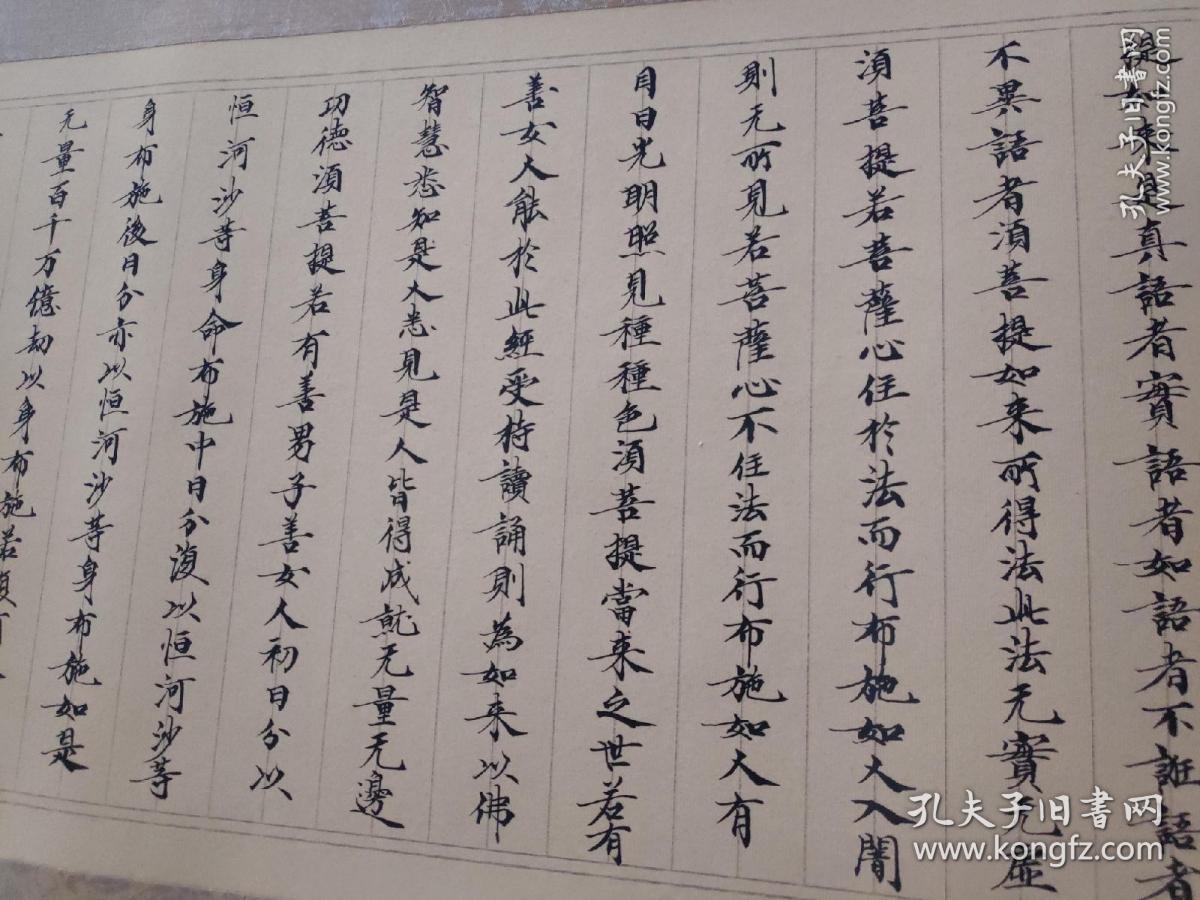 提如来是真語者實語者如語者不誑語者
不異語者須菩提如来所得法此法无實无虛
須菩提若菩薩心住於法而行布施如人入闇
則无所見若菩薩心不住法而行布施如人有
目日光明照見種種色須菩提當来之世若有
善女人能於此經受持讀誦則為如来以佛
智慧悉知是人悉見是人皆得成就无量无邊
功德須菩提若有善男子善女人初日分以
恒河沙等身命布施中日分復以恒河沙等
身布施後日分亦以恒河沙等身布施如是
无量百千万億劫以身布施若復有
孔夫子旧书网
www.kongfz.com
孔夫子旧书网
www.kongfz.com